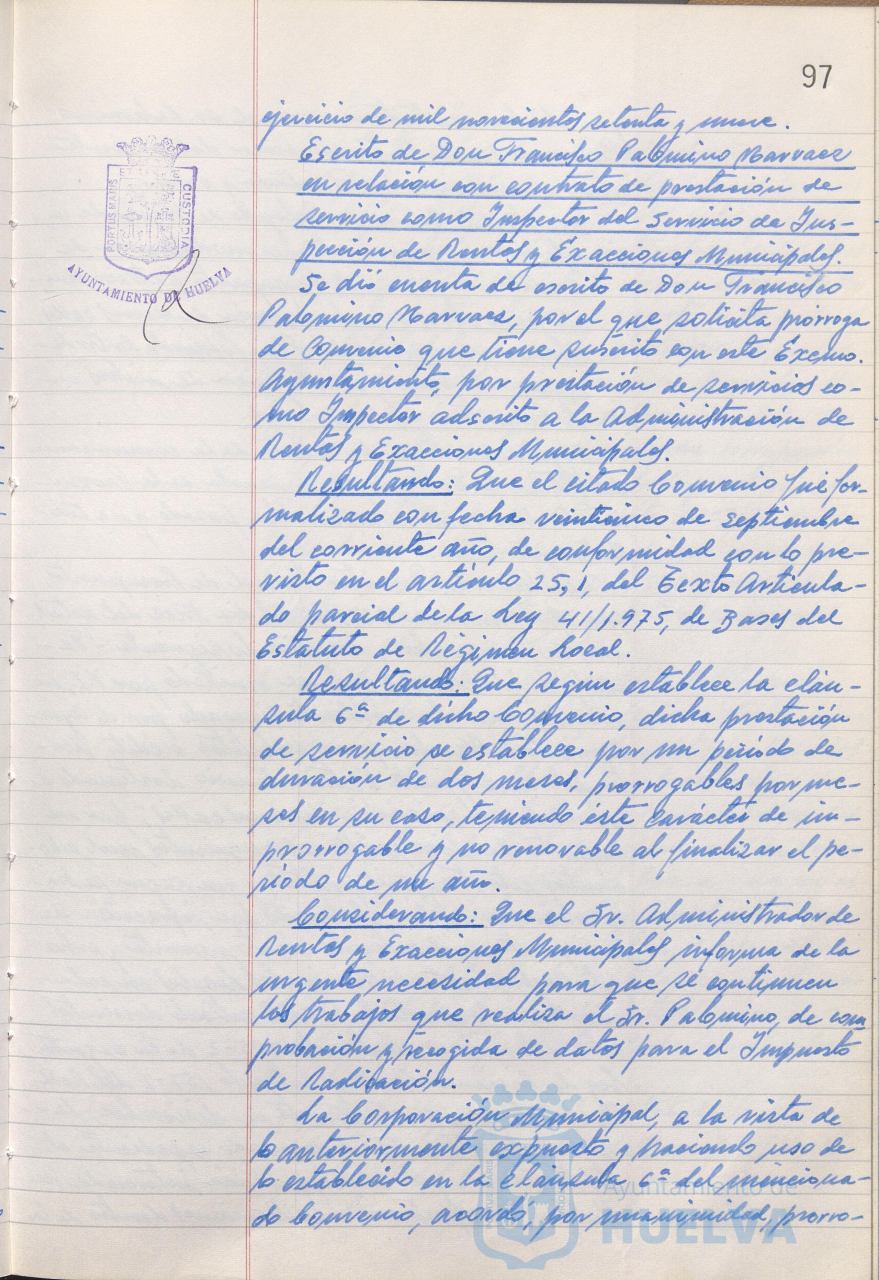 97
ejercicio de mil novecientos setenta y nueve.
Escrito de Don Francisco Palomino Narvaez
en relación con contrato de prestación de
servicio como Inspector del Servicio de Ins-
pección de Rentas y Exacciones Municipales.
Se dió cuenta de escrito de Don Francisco
Palomino Narvaez, por el que solicita prórroga
de Convenio que tiene suscrito con este Excmo.
Ayuntamiento, por prestación de servicios co-
mo Inspector adscrito a la Administración de
Rentas y Exacciones Municipales.
Resultando: Que el citado Convenio fué for-
malizado con fecha veinticinco de septiembre
del corriente año, de conformidad con lo pre-
visto en el artículo 25,1, del Texto Articula-
do parcial de la Ley 41/1.975, de Bases del
Estatuto de Régimen Local.
Resultando: Que según establece la cláu-
sula 6ª de dicho Convenio, dicha prestación
de servicio se establece por un período de
duración de dos meses, prorrogables por me-
ses en su caso, teniendo éste carácter de im-
prorrogable y no renovable al finalizar el pe-
ríodo de un año.
Considerando: Que el Sr. Administrador de
Rentas y Exacciones Municipales informa de la
urgente necesidad para que se continuen
los trabajos que realiza el Sr. Palomino, de com
probación y recogida de datos para el Impuesto
de Radicación.
La Corporación Municipal, a la vista de
lo anteriormente expuesto y haciendo uso de
lo establecido en la Cláusula 6ª del menciona-
do Convenio, acordó, por unanimidad, prorro-
PORTUS MARIS
CUSTODIA
AYUNTAMIENTO DE HUELVA
Ayuntamiento de
HUELVA